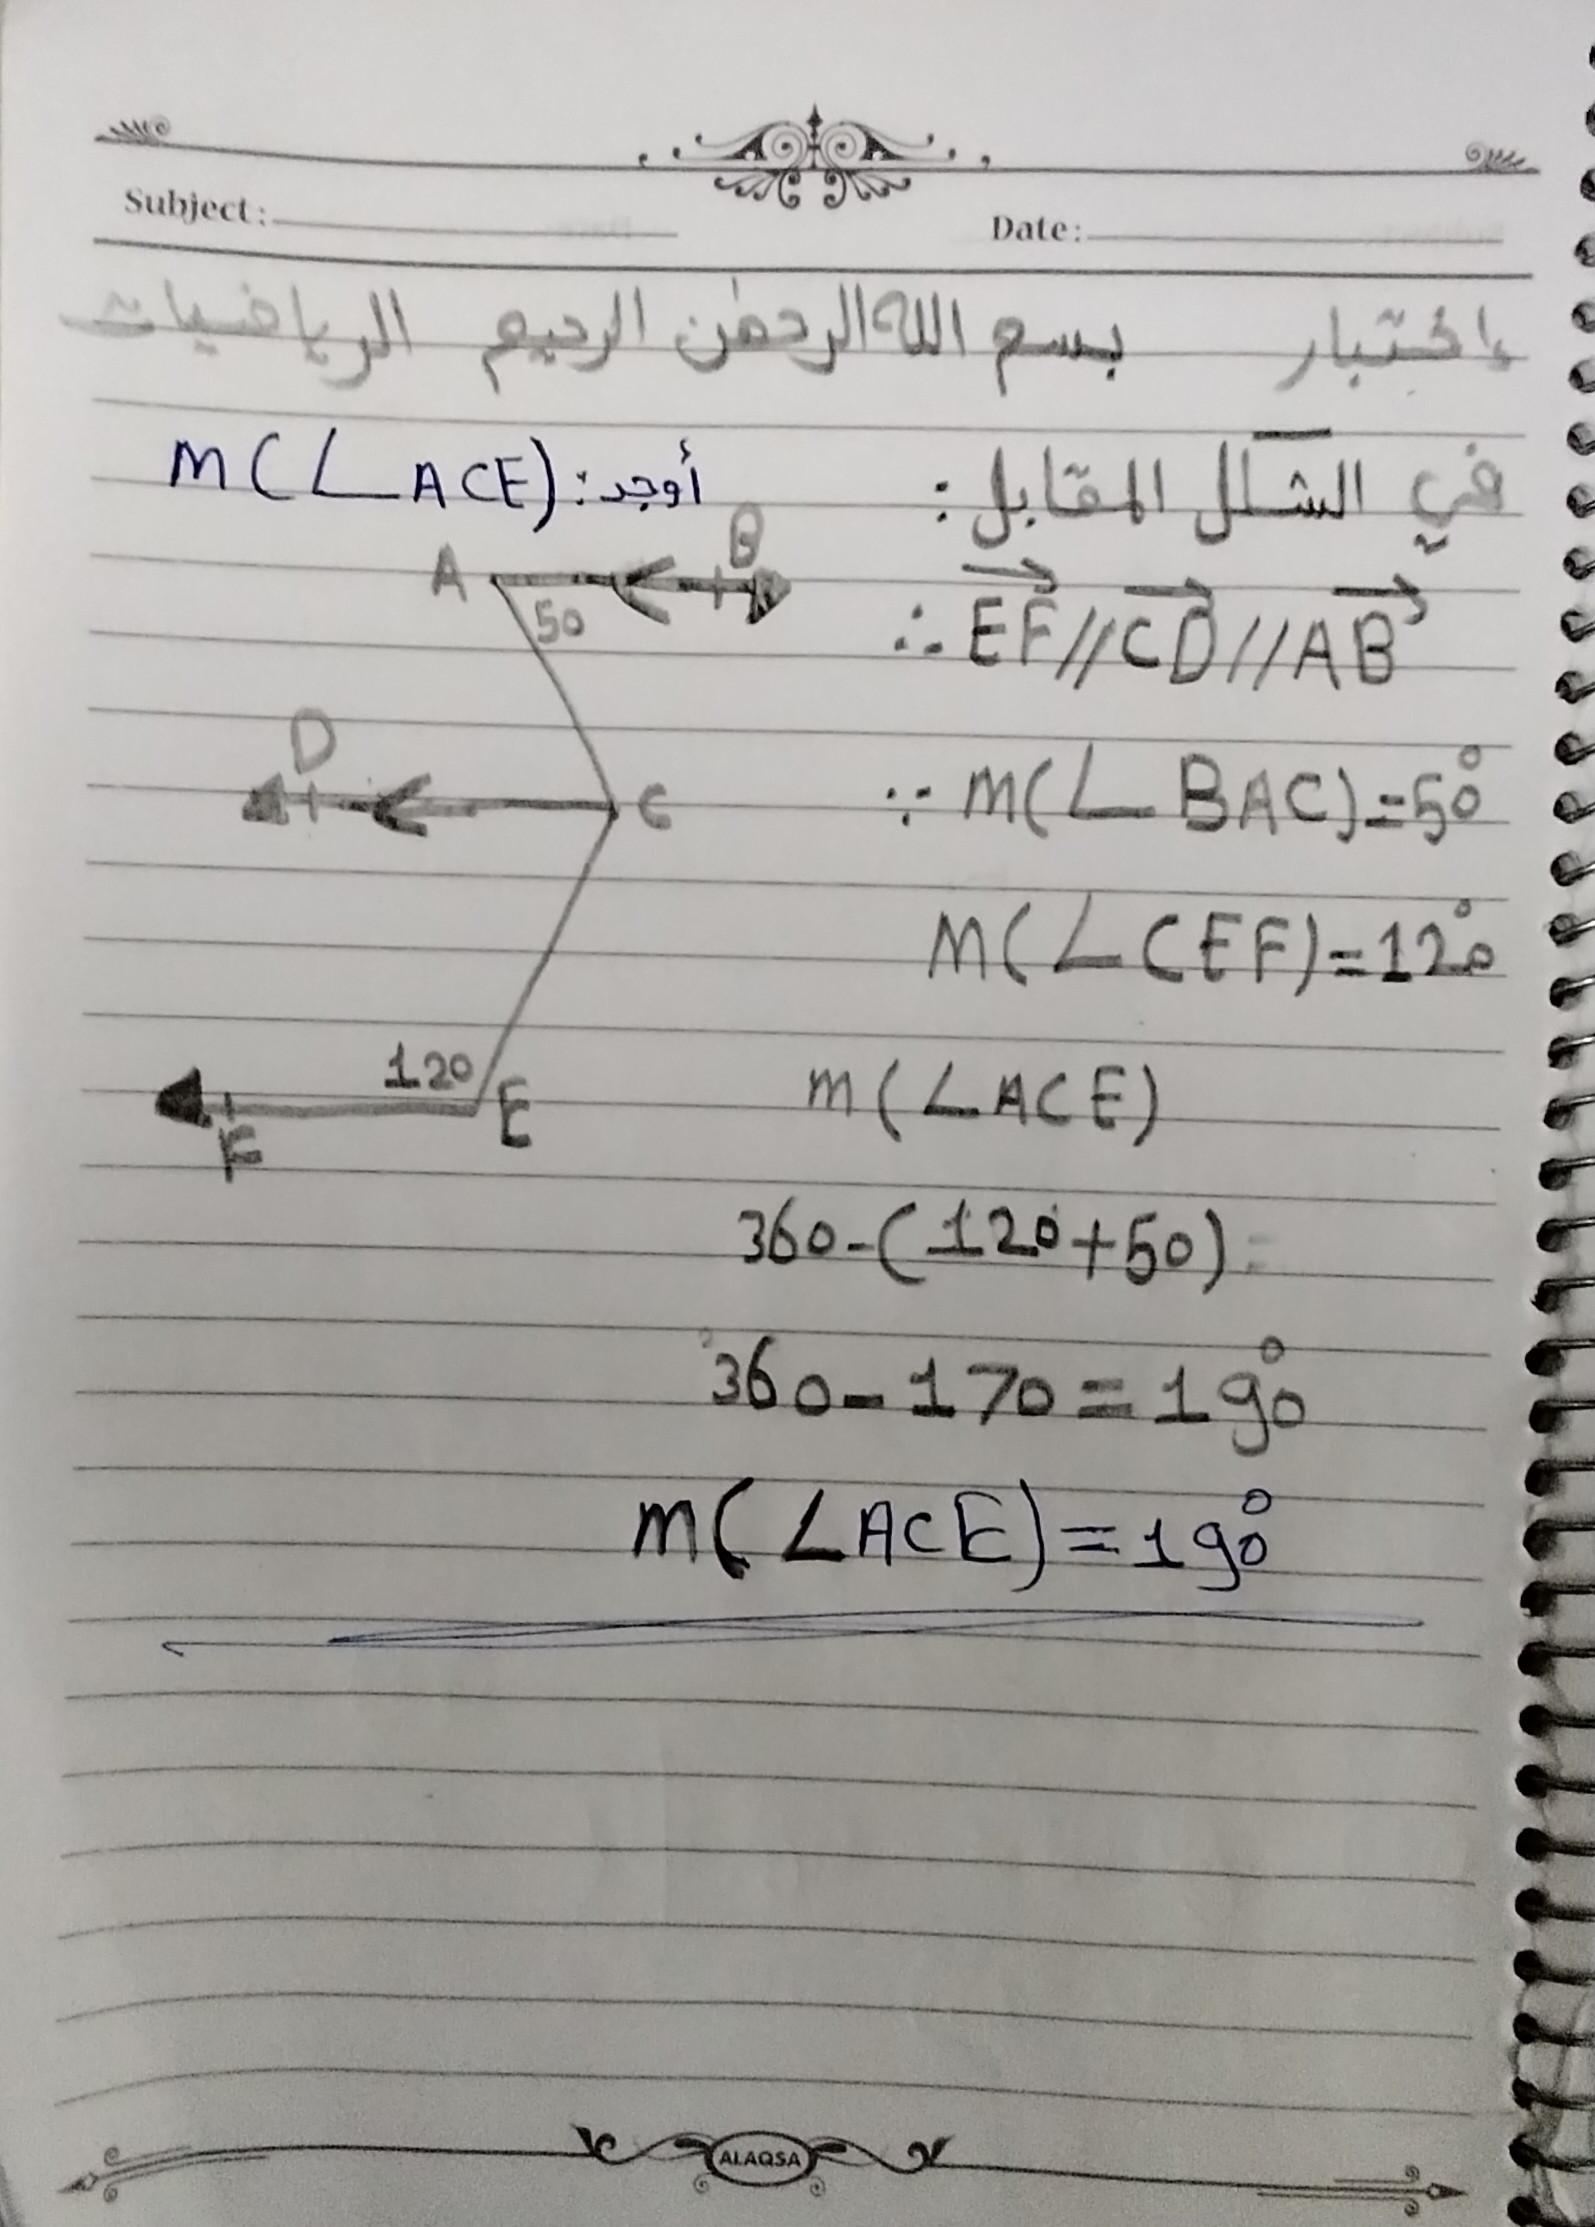 Subject: Date:
إختبار بسم الله الرحمٰن الرحيم الرياضيات
في الشكل المقابل: أوجد: m(∠ACE)
A B
50
∴ EF // CD // AB
D C
∵ m(∠BAC)=50°
m(∠CEF)=120°
120 E
F
m(∠ACE)
360-(120+50)=
360-170=190°
m(∠ACE)=190°
ALAQSA